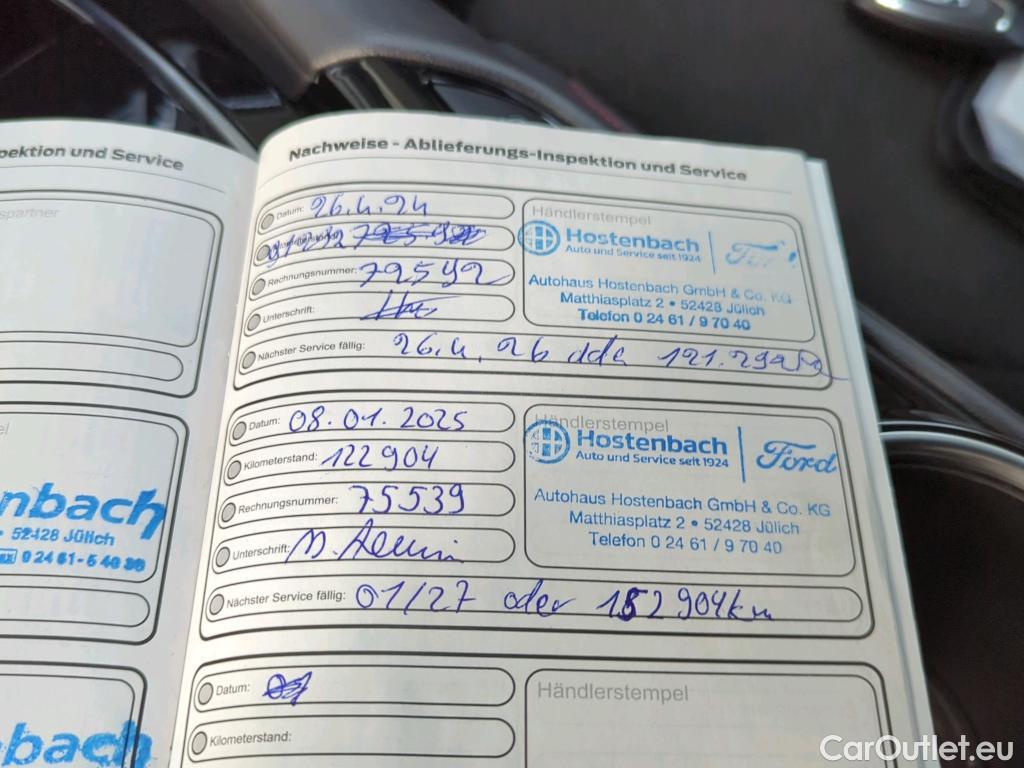 pektion und Service
spartner
nbach
52428 Jülich
Nachweise - Ablieferungs-Inspektion und Service
Datum: 26.4.24
Rechnungsnummer: 72592
Unterschrift:
Nächster Service fällig: 26.4.26
Händlerstempel
Hostenbach
Auto und Service seit 1924
Autohaus Hostenbach GmbH & Co. KG
Matthiasplatz 2 • 52428 Jülich
Telefon 0 24 61 / 9 70 40
Datum: 08.01.2025
Kilometerstand: 122904
Rechnungsnummer: 75539
Unterschrift:
Nächster Service fällig: 01/27 oder 152904km
Händlerstempel
Hostenbach
Auto und Service seit 1924
Ford
Autohaus Hostenbach GmbH & Co. KG
Matthiasplatz 2 • 52428 Jülich
Telefon 0 24 61 / 9 70 40
Datum:
Kilometerstand:
Händlerstempel
bach
CarOutlet.eu